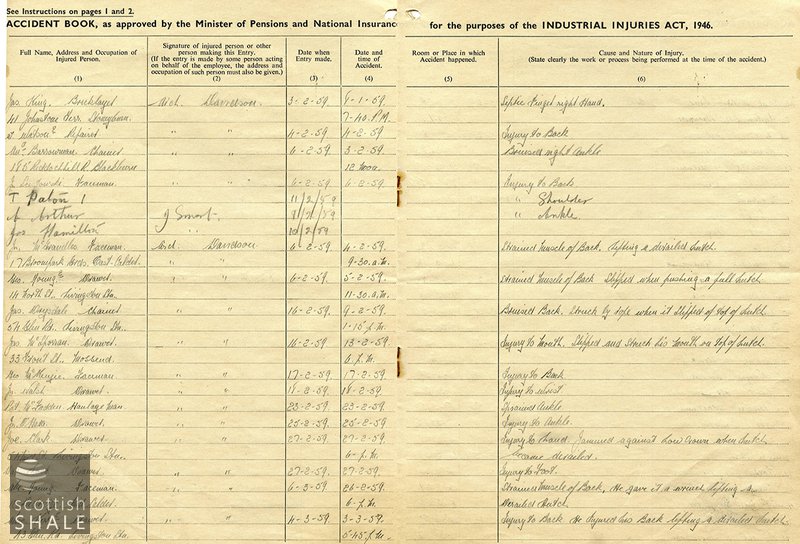 See Instructions on pages 1 and 2.
ACCIDENT BOOK, as approved by the Minister of Pensions and National Insurance for the purposes of the INDUSTRIAL INJURIES ACT, 1946.
Full Name, Address and Occupation of Injured Person.
(1)
Signature of injured person or other person making this Entry.
(If the entry is made by some person acting on behalf of the employee, the address and occupation of such person must also be given.)
(2)
Date when Entry made.
(3)
Date and time of Accident.
(4)
Room or Place in which Accident happened.
(5)
Cause and Nature of Injury.
(State clearly the work or process being performed at the time of the accident.)
(6)
Jas. King. Bricklayer Mich. Davidson 3-2-59 9-1-59. Septic Finger right Hand.
41 Johnstone Terr. 7-40 P.M.
Repairer " " 4-2-59 4-2-59. Injury to Back
Barrowman. Chainer " " 6-2-59 3-2-59. Bruised right Ankle
Blackburn 12 noon.
Faceman " " 6-2-59 6-2-59 Injury to Back
T Paton 11/2/59 " Shoulder
A Arthur J Smart. /2/59 " Ankle
Jas Hamilton " 10/2/59
Faceman Mich. Davidson 6-2-59 4-2-59. Strained Muscle of Back. Lifting a derailed Hutch.
East Calder. " " 9-30. a.m.
Geo. Young Drawer " " 6-2-59 5-2-59. Strained Muscle of Back Slipped when pushing a full Hutch
14 North St. Livingston Stn. " " 11-30. a.m.
Jas. Drysdale Chainer " " 16-2-59. 9-2-59. Bruised Back. Struck by rope when it slipped off top of Hutch
Livingston Stn. " " 1-15 p.m.
Jas. McSporran Drawer " " 16-2-59. 13-2-59. Injury to Mouth. Slipped and struck his Mouth on top of Hutch.
33 Front St. Mossend. 6 p.m.
Geo McKenzie Faceman " " 17-2-59. 17-2-59. Injury to Back
Jn. Walsh Drawer " " 18-2-59. Injury to wrist
Pat. McFadden Haulage Man " " 23-2-59. 23-2-59. Sprained Ankle
Drawer " " 25-2-59. 25-2-59. Injury to Ankle.
Joe. Clark Drawer " " 27-2-59. 27-2-59. Injury to Hand Jammed against Low Crown when Hutch
6- p.m. became derailed.
Drawer " " 27-2-59. 27-2-59. Injury to Foot.
Young. Faceman " " 6-3-59. 26-2-59. Strained Muscle of Back. He gave it a wrench lifting a
Calder. 6- p.m. Derailed Hutch.
" " 4-3-59. 3-3-59. Injury to Back He Injured his Back lifting a derailed Hutch.
Livingston Stn. 5-45 p.m.
scottish
SHALE